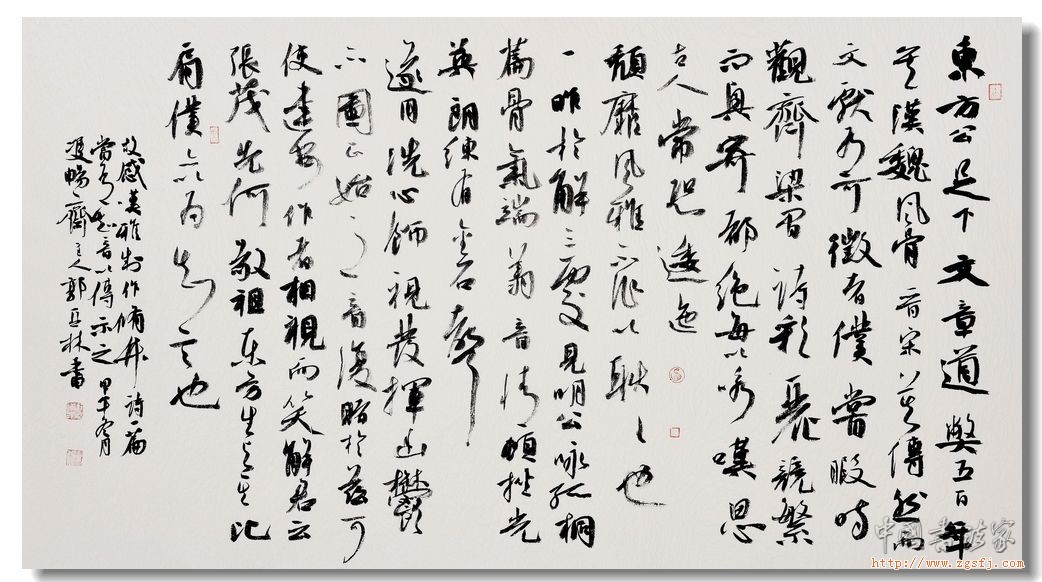 東方公足下文章道獘五百年
矣漢魏風骨晉宋莫傳然而
文獻有可徵者僕嘗暇時
觀齊梁間詩彩麗競繁
而興寄都絕每以咏嘆思
古人常恐逶迤
頹靡風雅不作以耿耿也
一昨於解三處見明公咏孤桐
篇骨氣端翔音情頓挫光
英朗練有金石聲
遂用洗心飾視發揮幽鬱
不圖正始之音復睹於茲可
使建安作者相視而笑解君云
張茂先何敬祖東方生與其比
肩僕亦以為知言也
故感嘆雅制作脩竹詩一篇
當有知音以傳示之甲午冬月
暢齋主人郭亞林書
中國書法家
http://www.zgsfj.com